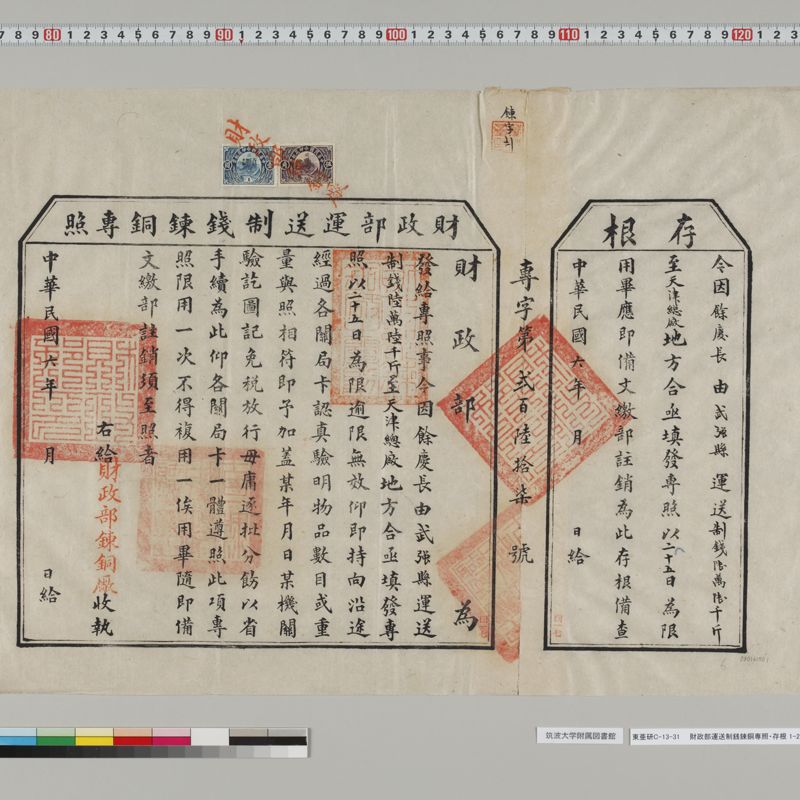 存根
令因餘慶長由武強縣運送制錢陸萬陸千斤
至天津總廠地方合亟填發專照以二十五日為限
用畢應即備文繳部註銷為此存根備查
中華民國六年 月 日給
專字第貳百陸拾柒號
財政部運送制錢鍊銅專照
財政部為
發給專照事令因餘慶長由武強縣運送
制錢陸萬陸千斤至天津總廠地方合亟填發專
照以二十五日為限逾限無效仰即持向沿途
經過各關局卡認真驗明物品數目或重
量與照相符即予加蓋某年月日某機關
驗訖圖記免稅放行毋庸逐批分飭以省
手續為此仰各關局卡一體遵照此項專
照限用一次不得複用一俟用畢隨即備
文繳部註銷須至照者
右給財政部鍊銅廠收執
中華民國六年 月 日給
7 8 9 80 1 2 3 4 5 6 7 8 9 90 1 2 3 4 5 6 7 8 9 100 1 2 3 4 5 6 7 8 9 110 1 2 3 4 5 6 7 8 9 120 1 2 3
筑波大学附属図書館
東亜研C-13-31 財政部運送制銭錬銅専照・存根 1-2